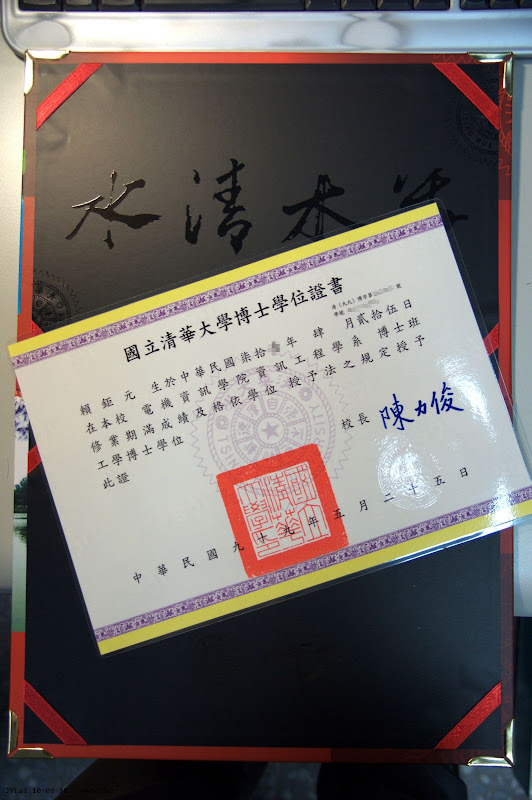 水清木華
國立清華大學博士學位證書
清(九九)博字第 號
學號
賴鉅元 生於中華民國柒拾 年 肆 月貳拾伍日
在本校 電機資訊學院資訊工程學系 博士班
修業期滿成績及格依學位 授予法之規定授予
工學博士學位
此證
校長 陳力俊
國立清華大學
中華民國九十九年五月二十五日